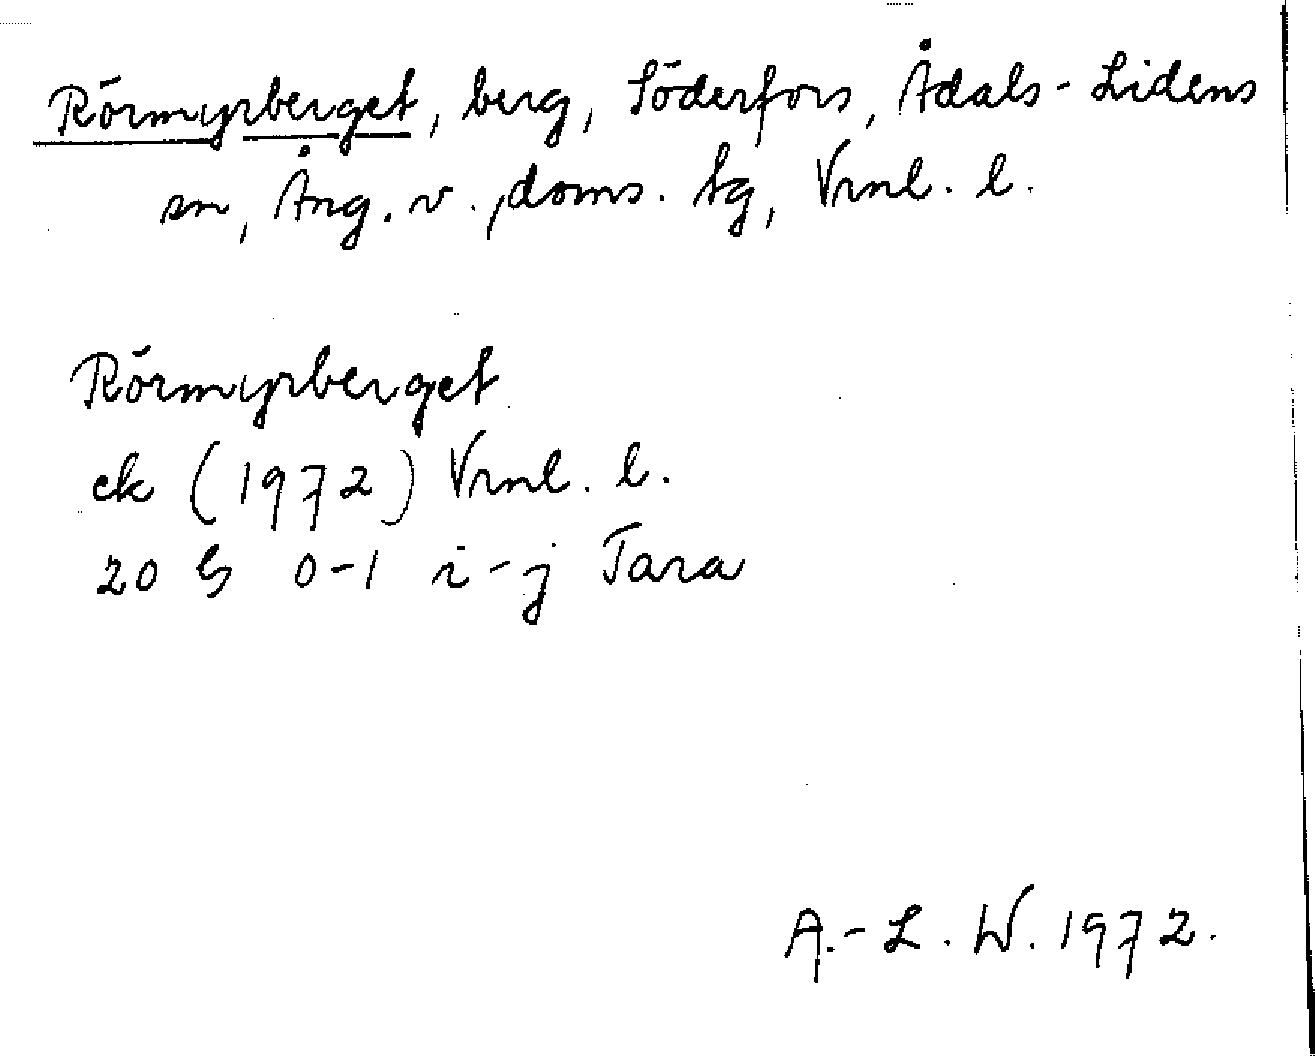 Rörmyrberget, berg, Söderfors, Ådals-Lidens
sn, Ång. v. doms. tg, Vrnl. l.
Rörmyrberget
ek (1972) Vrnl. l.
20 G 0-1 i-j Tara
A.-L. W. 1972.